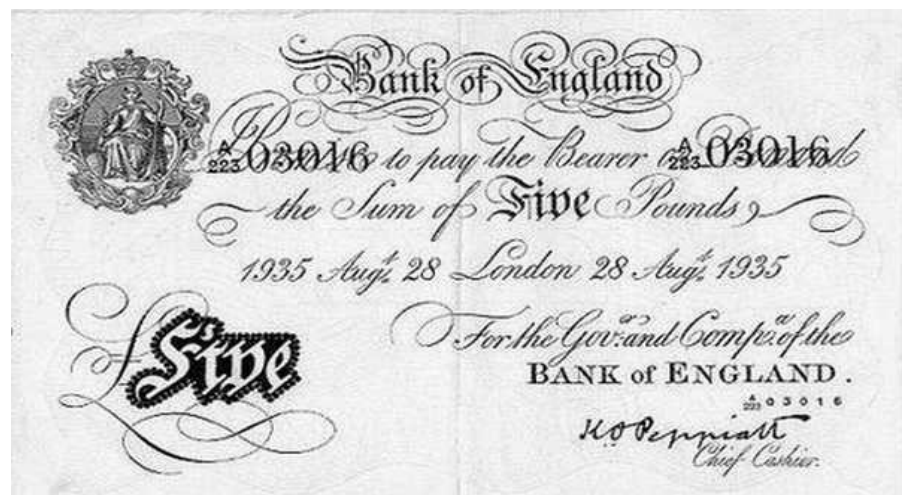 Bank of England
A/223 03016 to pay the Bearer A/223 03016
the Sum of Five Pounds
1935 Augt. 28 London 28 Augt. 1935
For the Govr. and Compa. of the
Five
BANK of ENGLAND.
A/223 03016
K O Peppiatt
Chief Cashier.